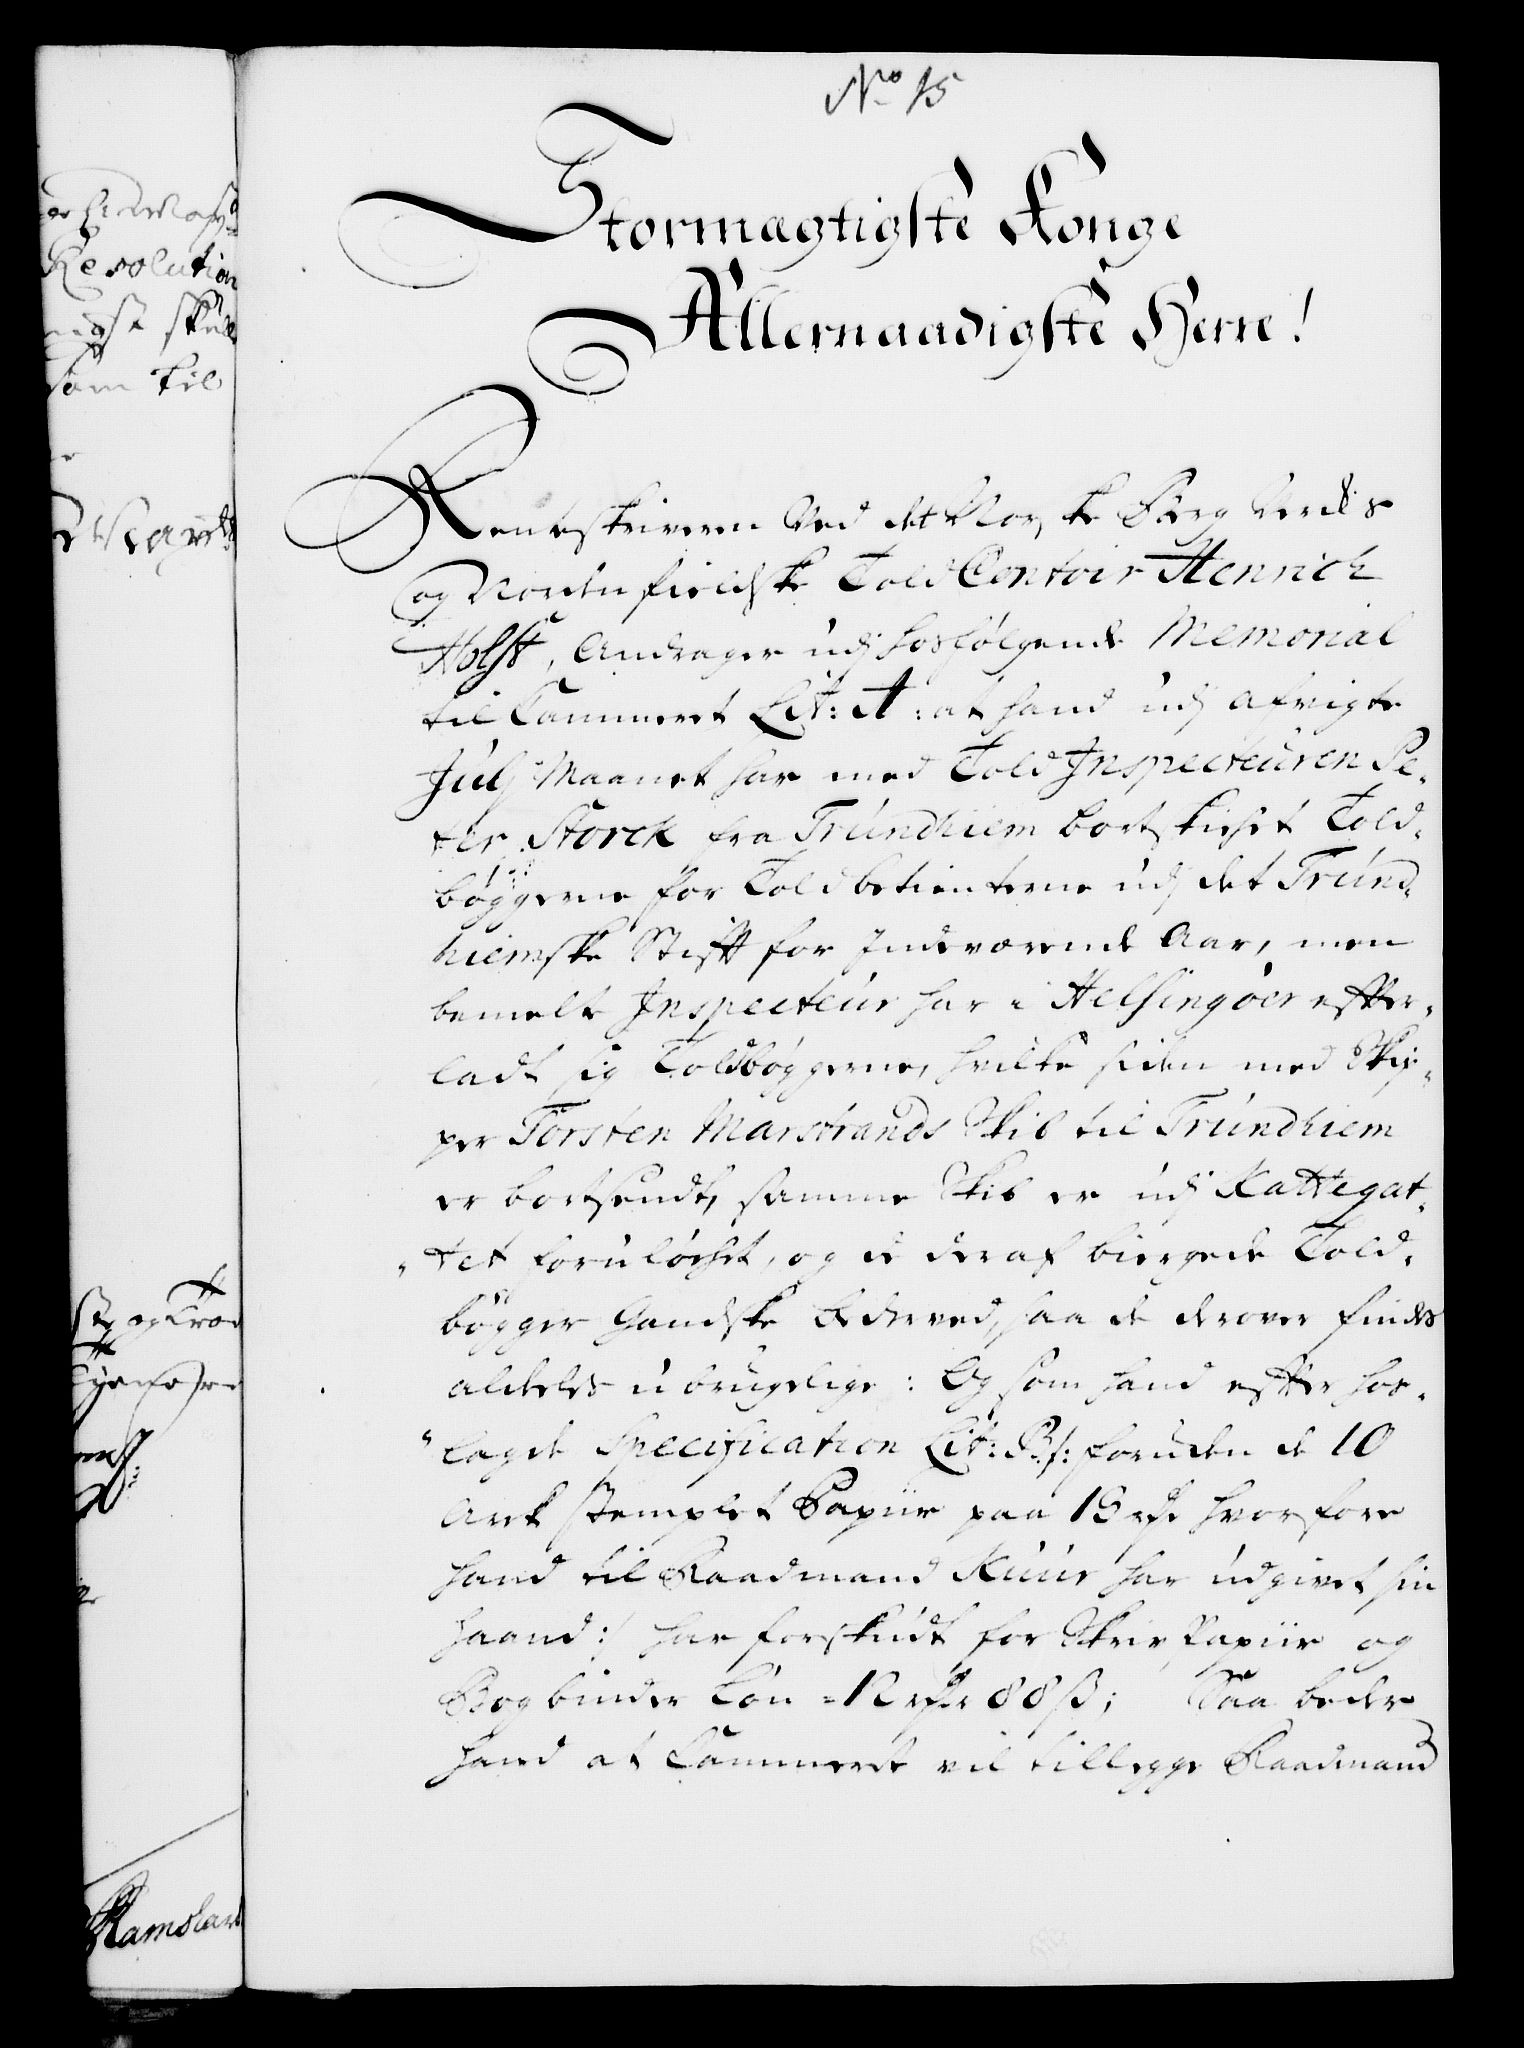 No 15
Stormægtigste Konge
Allernaadigste Herre!
Rentskriveren Ved det Norske Berg Verchs
og Nordenfieldske Told Contoir Henrich
Holst, Andrager udj hosfølgende Memorial
til Cammeret Lit: A: at hand udj afvigte
Julj Maanet har med Told Inspecteuren Pe-
ter Storck fra Trundhiem bortskichet Told-
bøggerne for Toldbetienterne udj det Trund-
hiemske Stifft for Indeværende Aar, men
bemelte Inspecteur har i Helsingøer effter-
ladt sig Toldbøggerne, hvilke siden med Skip-
per Torsten Marstrands Skib til Trundhiem
er bortsendt, samme Skib er udj Kattegat-
tet foruløchet, og de deraf biergede Told-
bøgger gandske bederved, saa de derover findes
aldeles ubrugelige: Og som hand effter hos-
lagde Specification Lit: B/: foruden de 10
Ark stemplet Papiir paa 15 rdr hvorfore
hand til Raadmand Kuur har udgivet sin
haand:/ har forskudt for Skriv Papiir og
Bogbinder Løn = 12 rdr 88 ß; Saa beder
hand at Cammeret vil tillegge Raadmand
Resolution
som til